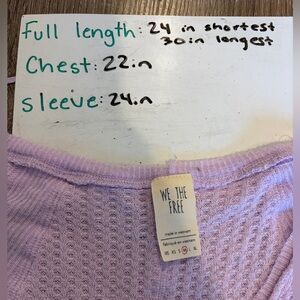 Full length: 24 in shortest
30in longest
Chest: 22in
Sleeve: 24in
WE THE
FREE
made in vietnam
fabriqué en vietnam
XS S M L XL